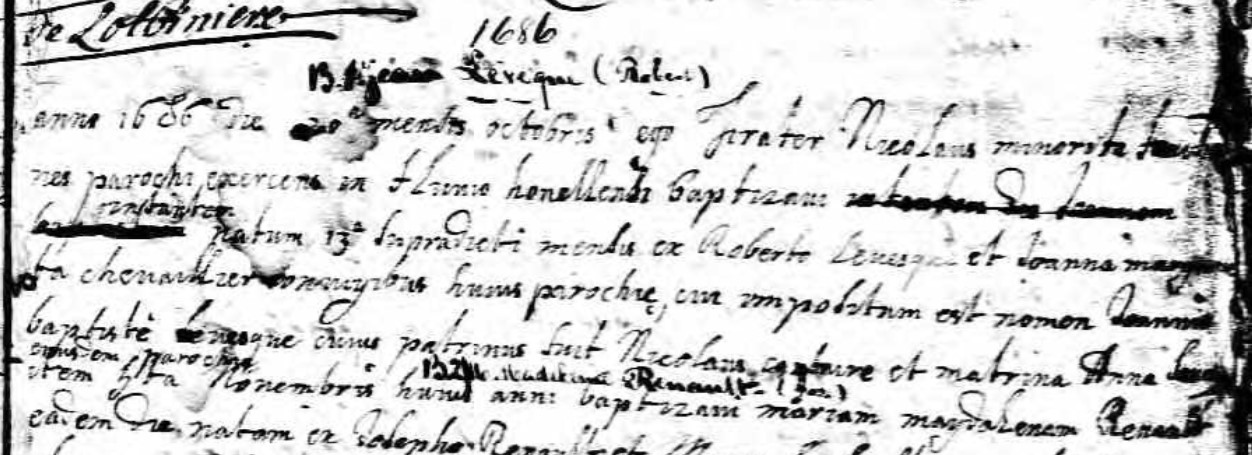 de Lotbiniere
1686
B. Jean Levêque (Robert)
anno 1686 die 20ª mensis octobris ego frater Nicolaus minorita
nes parochi exercens in flumio honellensi baptizavi
infantem
natum 13ª supradicti mensis ex Roberto Levesque et Joanna marga
ta chevaillier conjugibus hujus parochię, cui impositum est nomen Joannis
baptistę levesque cujus patrinus fuit Nicolaus et matrina Anna
ejusdem parochię
B. M. Madeleine Renault (Jos.)
item 5ta Novembris hujus anni baptizavi mariam magdalenam Renault
eadem die natam ex Josepho Renault et